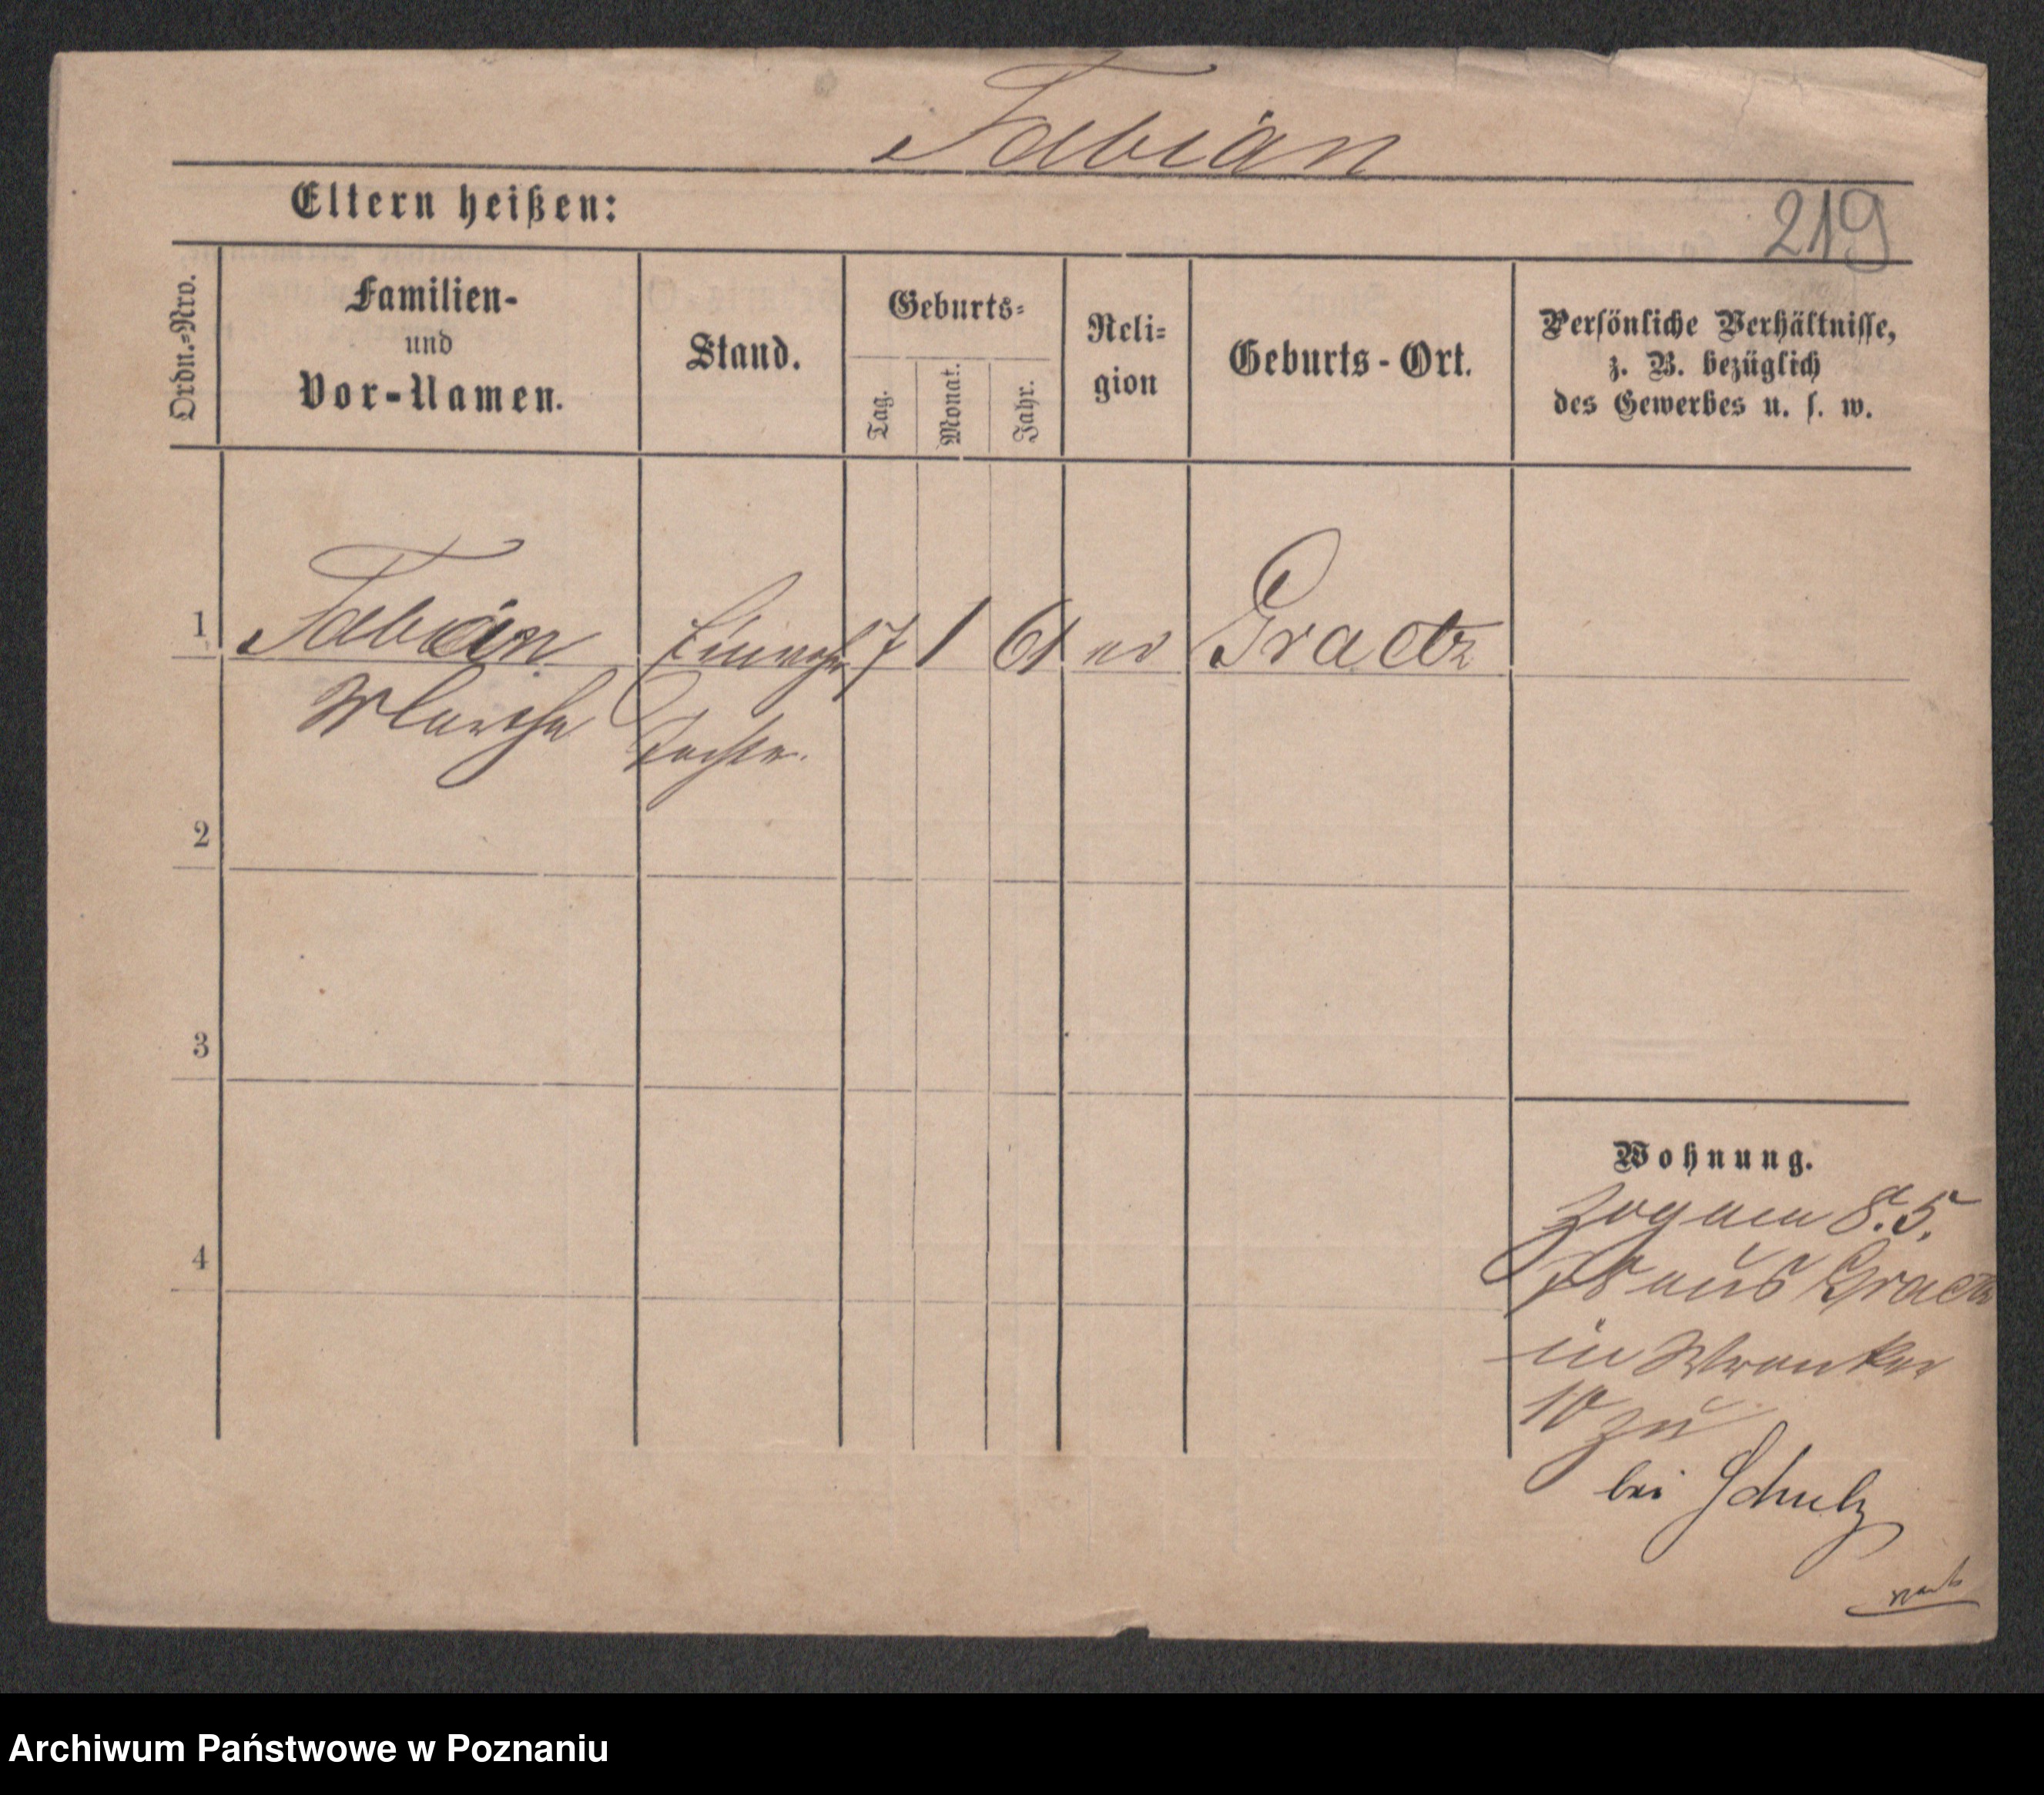 Fabian
Eltern heißen:
219
Ordn.-Nro.
Familien-
und
Vor-Namen.
Stand.
Geburts-
Tag.
Monat.
Jahr.
Reli-
gion
Geburts-Ort.
Persönliche Verhältnisse,
z. B. bezüglich
des Gewerbes u. s. w.
1 Fabian 7 1 61 Graetz
Tochter.
2
3
4
Wohnung.
Zog am 8.5.
aus Graetz
in Wronker
10 zu
bei Schulz
Archiwum Państwowe w Poznaniu